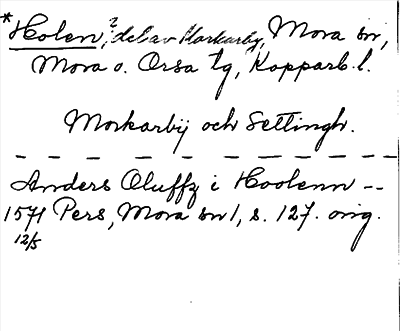 *Holen, ? del av Morkarby, Mora sn,
Mora o. Orsa tg, Kopparb. l.
Morkarby och Settingh.
Anders Oluffz i Hoolenn --
1571 Pers, Mora sn 1, s. 127. orig.
12/5